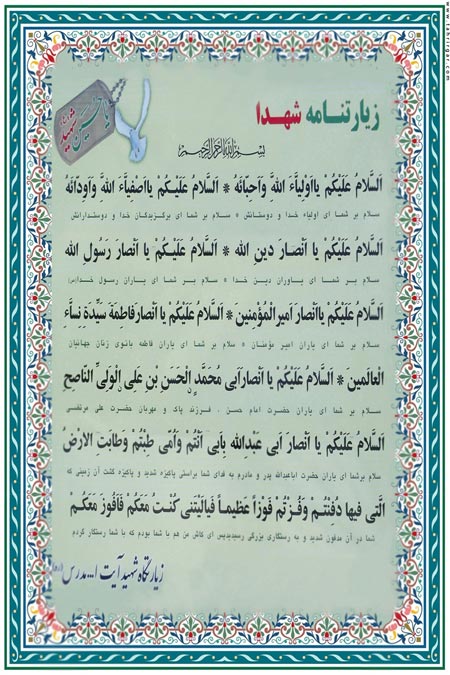 www.tahrirgar.com
زیارتنامه شهدا
یا حسین شهید
بسم الله الرحمن الرحیم
اَلسَّلامُ عَلَیکُمْ یا اَوْلِیاَّءَ اللَّهِ وَاَحِبّائَهُ * اَلسَّلامُ عَلَیکُمْ یا اَصْفِیاَّءَ اللَّهِ وَاَوِدّائَهُ
سلام بر شما ای اولیاء خدا و دوستانش * سلام بر شما ای برگزیدگان خدا و دوستدارانش
اَلسَّلامُ عَلَیکُمْ یا اَنْصارَ دینِ اللَّهِ * اَلسَّلامُ عَلَیکُمْ یا اَنْصارَ رَسُولِ اللَّهِ
سلام بر شما ای یاوران دین خدا * سلام بر شما ای یاران رسول خدا(ص)
اَلسَّلامُ عَلَیکُمْ یا اَنْصارَ اَمیرِالْمُؤْمِنینَ * اَلسَّلامُ عَلَیکُمْ یا اَنْصارَ فاطِمَةَ سَیِّدَةِ نِساَّءِ
سلام بر شما ای یاران امیر مؤمنان * سلام بر شما ای یاران فاطمه بانوی زنان جهانیان
الْعالَمینَ * اَلسَّلامُ عَلَیکُمْ یا اَنْصارَ اَبی مُحَمَّدٍ الْحَسَنِ بْنِ عَلِی الْوَلِیِّ النّاصِحِ
سلام برشما ای یاران حضرت امام حسن ، فرزند پاک و مهربان حضرت علی مرتضی
اَلسَّلامُ عَلَیکُمْ یا اَنْصارَ اَبی عَبْدِاللهِ بِاَبی اَنْتُمْ وَاُمّی طِبْتُمْ وَطابَتِ الاَْرْضُ
سلام برشما ای یاران حضرت اباعبدالله پدر و مادرم به فدای شما براستی پاکیزه شدید و پاکیزه گشت آن زمینی که
الَّتی فیها دُفِنْتُمْ وَفُزْتُمْ فَوْزاً عَظیماً فَیالَیْتَنی کُنْتُ مَعَکُمْ فَاَفُوزَ مَعَکُمْ
شما در آن مدفون شدید و به رستگاری بزرگی رسیدیدپس ای کاش من هم با شما بودم که با شما رستگار گردم
زیارتگاه شهید آیت ا...مدرس(ره)